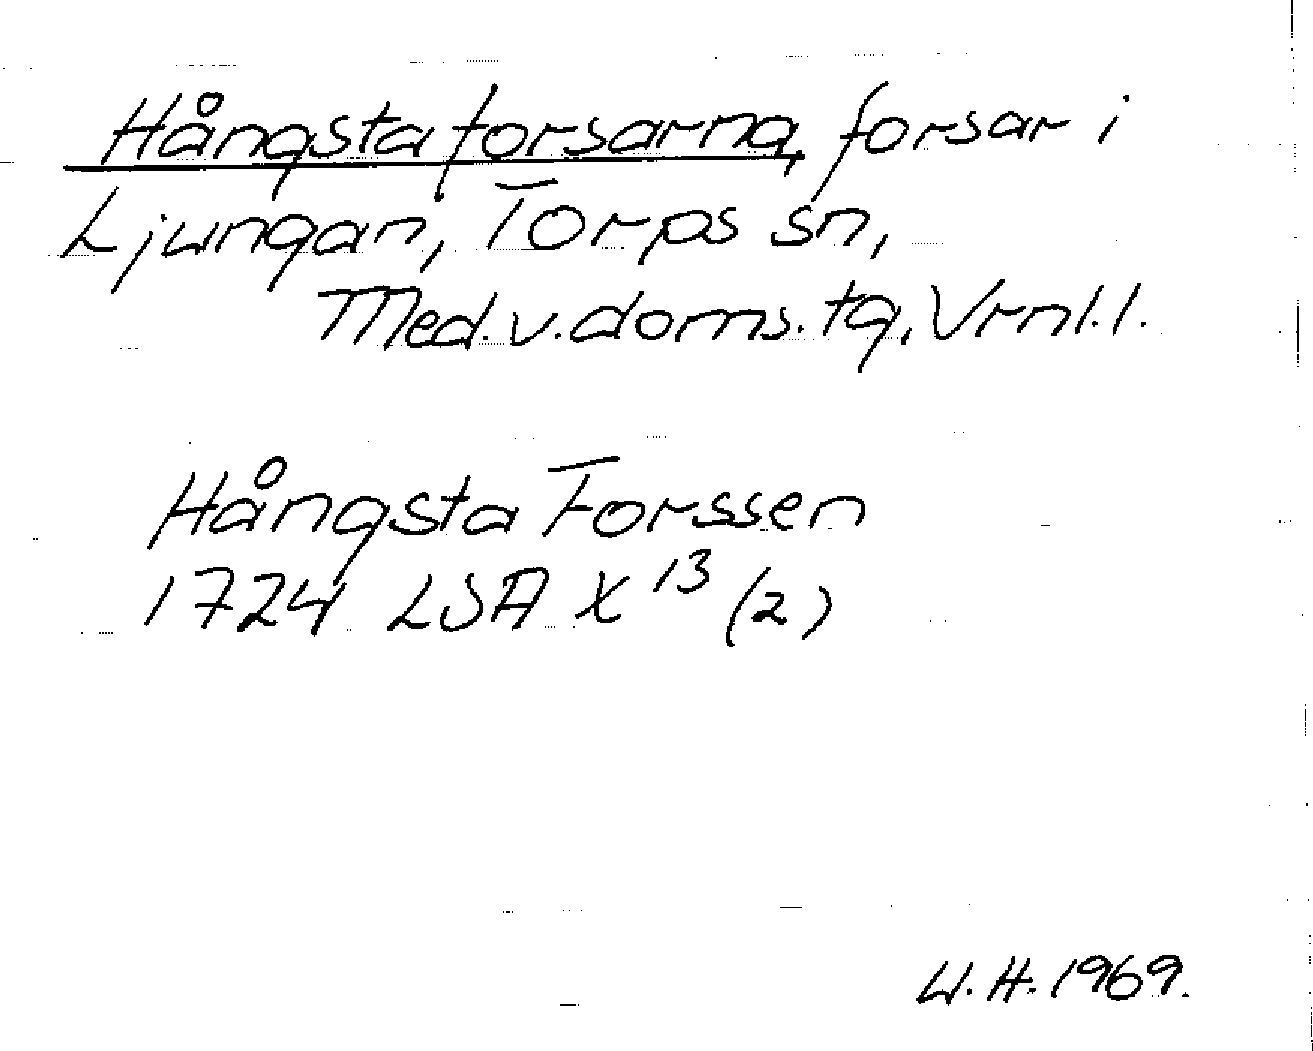 Hångstaforsarna, forsar i
Ljungan, Torps sn,
Med.v.doms.tg, Vrnl.l.
Hångsta Forssen
1724 LSA X 13 (2)
W.H. 1969.